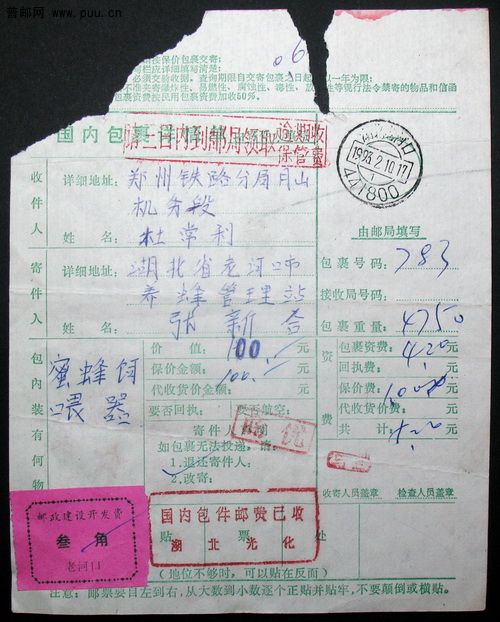 普邮网 www.puu.cn
保价包裹交寄:
栏应详细填写清楚:
必须交验收据。查询期限自交寄包裹之日起以一年为限;
不准夹寄爆炸性、易燃性、腐蚀性、毒性、放射性等现行法令禁寄的物品和信函
包裹资费按民用包裹资费加收50%。
国内包裹详情单
请三日内到邮局领取 逾期收保管费
1993.2.10.17
441800
收件人
详细地址:
郑州铁路分局月山
机务段
姓名:
杜常利
由邮局填写
寄件人
详细地址:
湖北省老河口市
养蜂管理站
姓名:
张新合
包裹号码:
783
接收局号码:
包裹重量:
4750
包内装有何物
蜜蜂饲
喂器
价值: 100 元
保价金额: 100 元
代收货价金额: 元
要否回执: 要否航空:
寄件人
如包裹无法投递,请:
1.退还寄件人;
2.改寄:
资费
包裹资费: 4.20 元
回执费: 元
保价费: 元
代收货价费: 元
共计: 元
收寄人员盖章 检查人员盖章
邮政建设开发费
叁角
老河口
国内包件邮费已收
湖北光化
贴票处
(地位不够时,可以贴在反面)
注意:邮票要自左到右,从大数到小数逐个正贴并贴牢,不要颠倒或横贴。